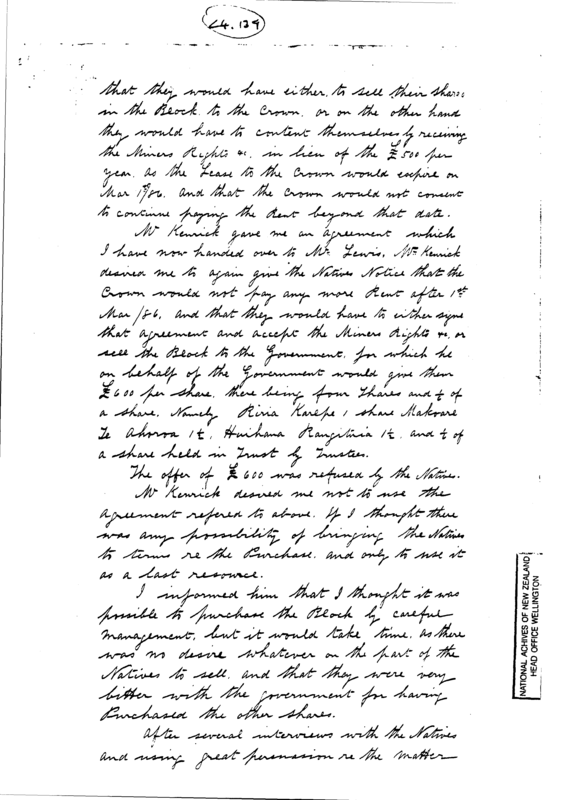 L4.139
that they would have either, to sell their shares
in the Block. to the Crown. or on the other hand
they would have to content themselves by receiving
the Miners Rights &c. in lieu of the £500 per
year. as the Lease to the Crown would expire on
Mar 1st/86. and that the Crown would not consent
to continue paying the Rent beyond that date.
Mr Kenrick gave me an agreement which
I have now handed over to Mr. Lewis. Mr. Kenrick
desired me to again give the Natives Notice that the
Crown would not pay any more Rent after 1st
Mar/86. and that they would have to either sign
that agreement and accept the Miners Rights &c. or
sell the Block to the Government. for which he
on behalf of the Government would give them
£600 per share. there being four Shares and ½ of
a share. Namely Riria Karepe 1 share Makoare
Te Ahoroa 1½. Huihana Rangituia 1½. and ½ of
a share held in Trust by Trustees.
The offer of £600 was refused by the Natives.
Mr Kenrick desired me not to use the
agreement refered to above. If I thought there
was any possibility of bringing the Natives
to terms re the Purchase. and only to use it
as a last resource.
I informed him that I thought it was
possible to purchase the Block by careful
management. but it would take time. as there
was no desire whatever on the part of the
Natives to sell. and that they were very
bitter with the government for having
Purchased the other shares.
After several interviews with the Natives
and using great persuasion re the matter
NATIONAL ACHIVES OF NEW ZEALAND
HEAD OFFICE WELLINGTON